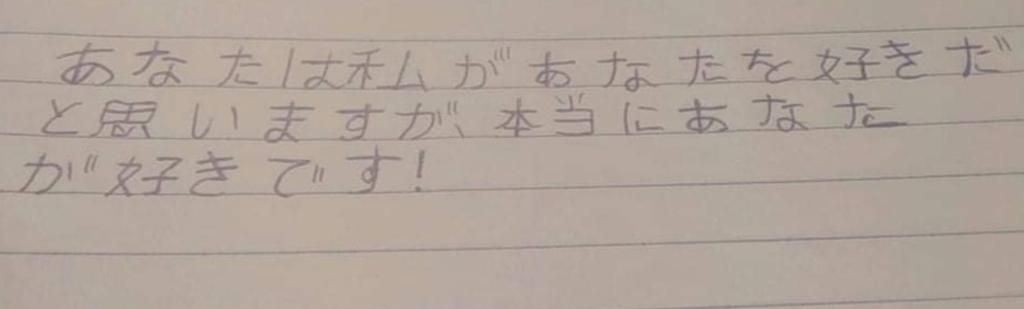 あなたは私があなたを好きだ
と思いますが、本当にあなた
が好きです!